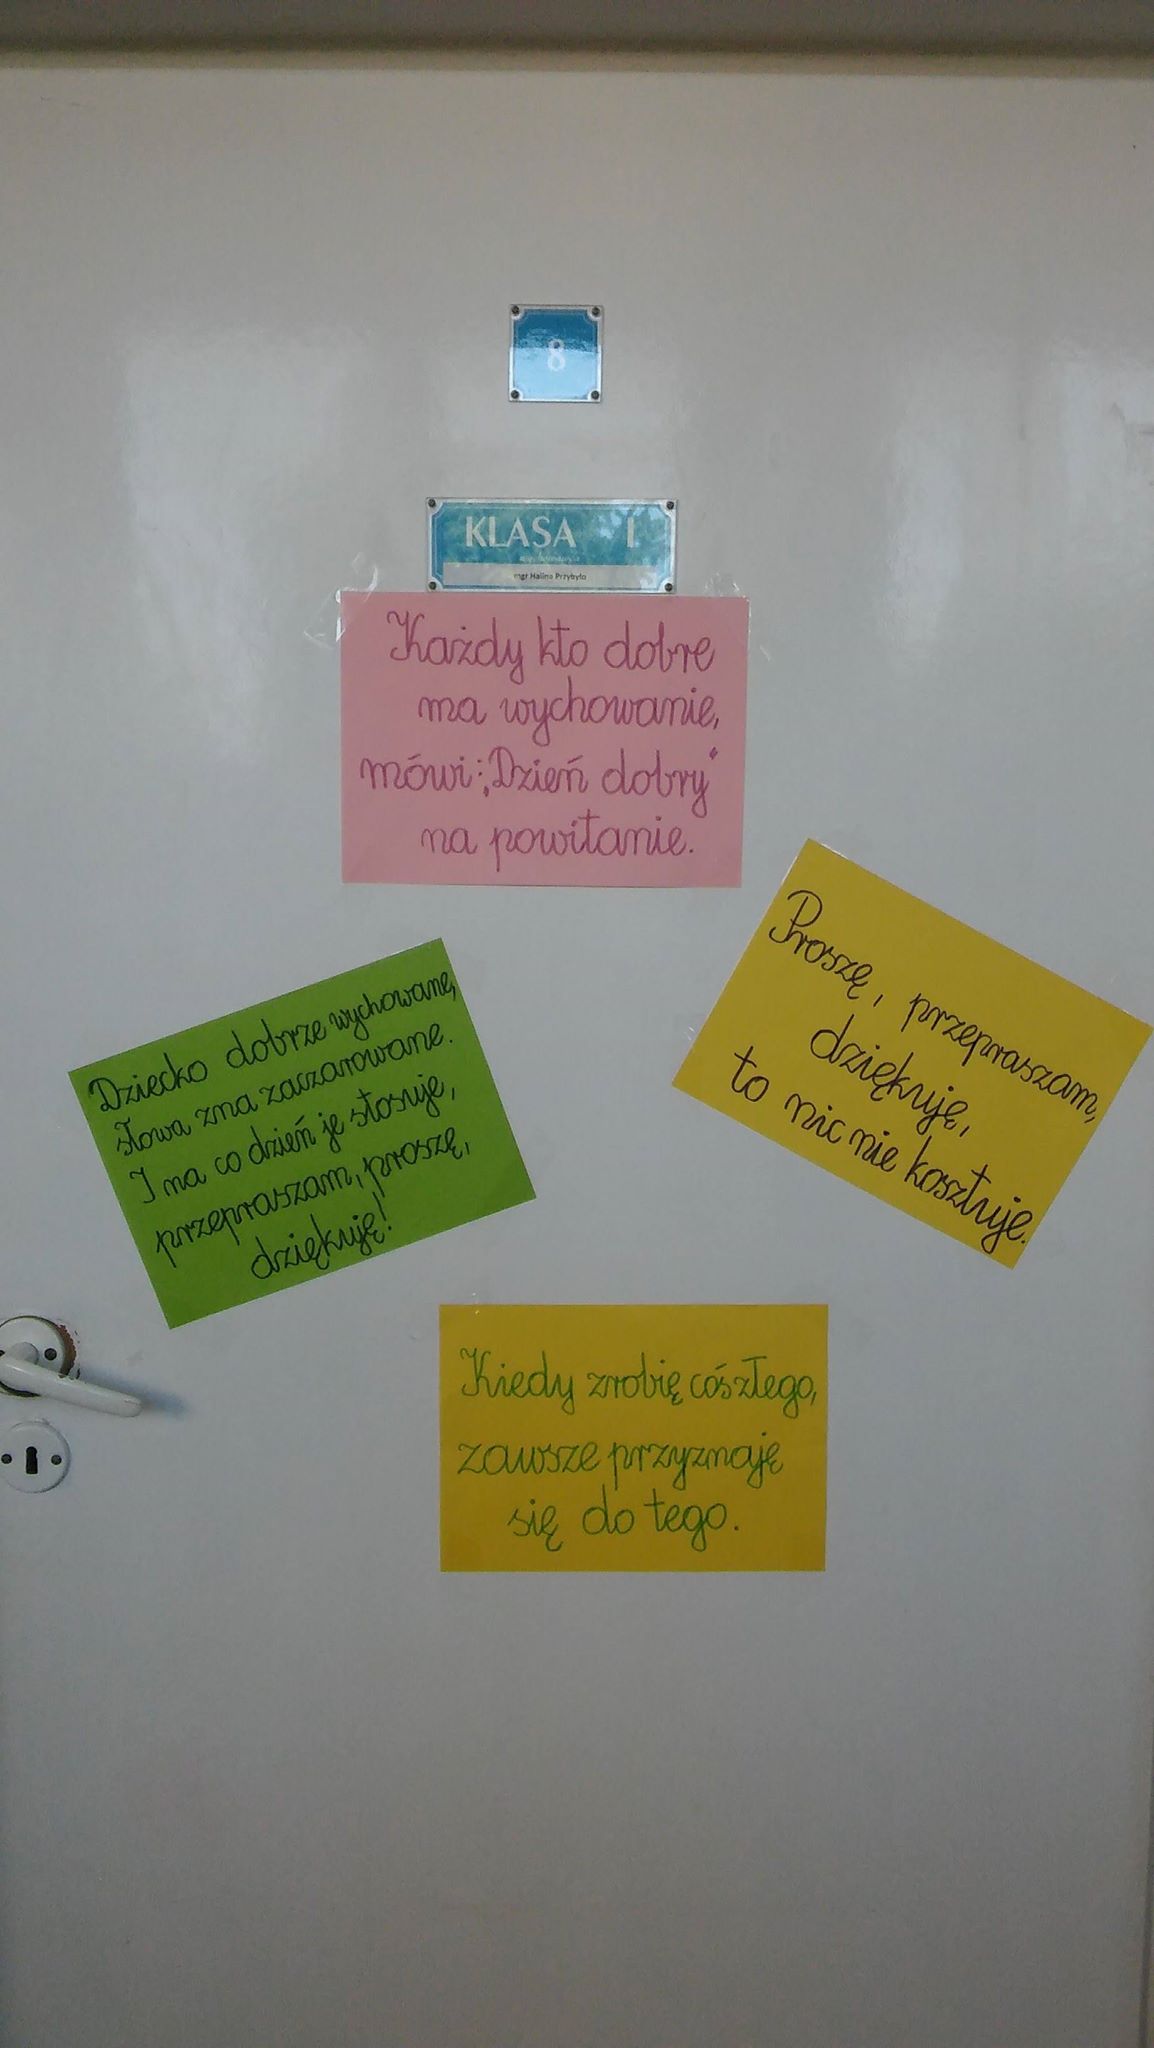 8
KLASA I
mgr Halina Przybyło
Każdy kto dobre
ma wychowanie,
mówi: „Dzień dobry”
na powitanie.
Proszę, przepraszam,
dziękuję,
to nic nie kosztuje.
Dziecko dobrze wychowane,
słowa zna zaczarowane.
I na co dzień je stosuje,
przepraszam, proszę,
dziękuję!
Kiedy zrobię coś złego,
zawsze przyznaję
się do tego.